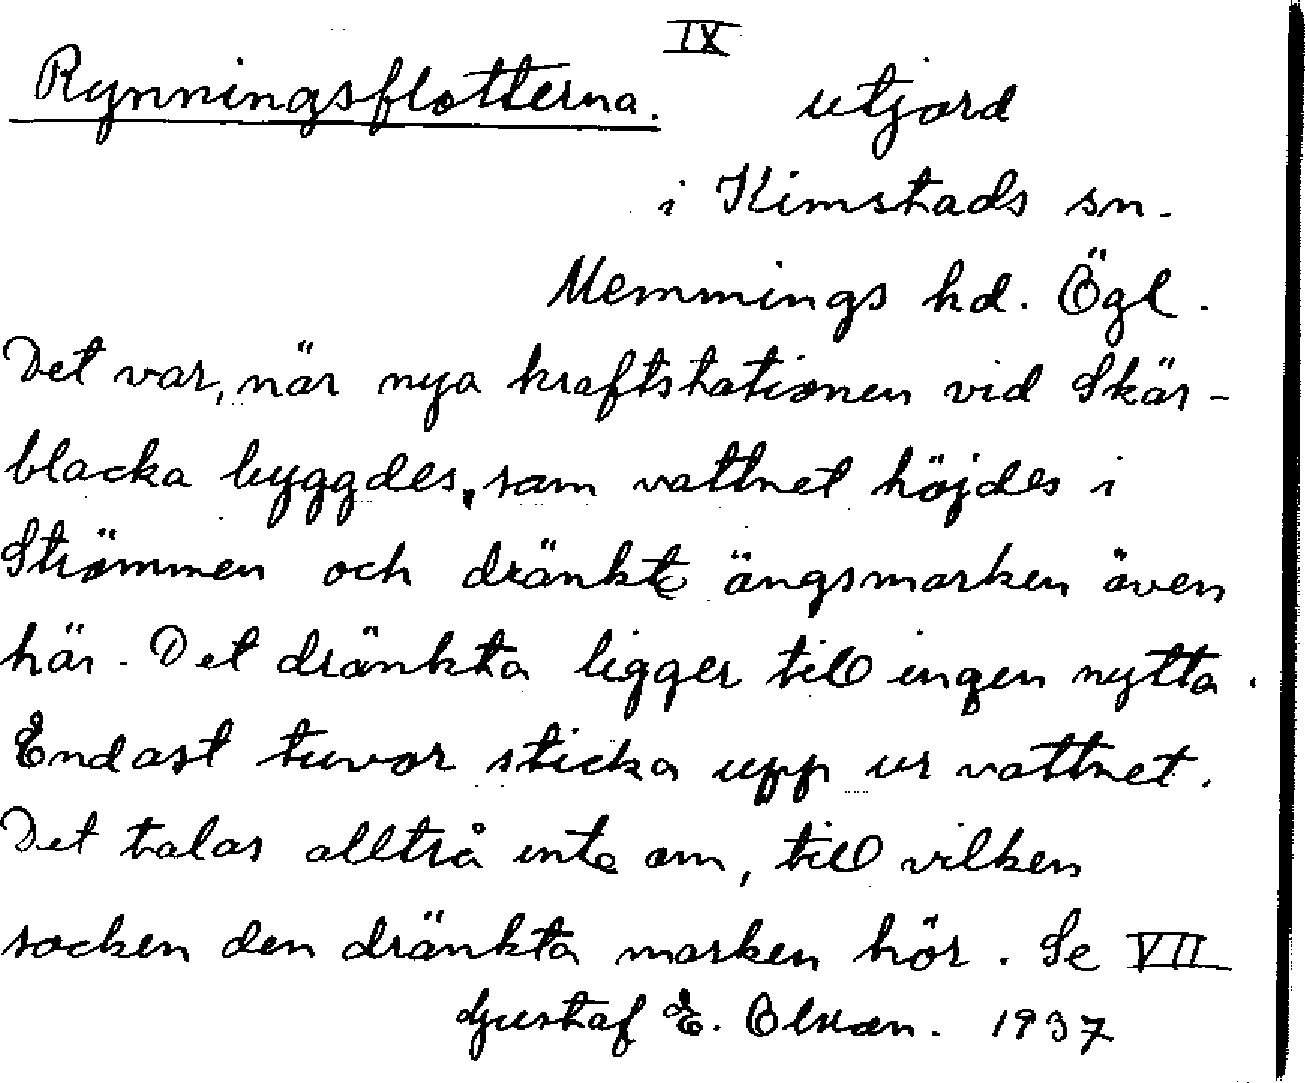 IX
Rynningsflotterna. utjord
i Kimstads sn.
Memmings hd. Ögl.
Det var, när nya kraftstationen vid Skär-
blacka byggdes, som vattnet höjdes i
Strömmen och dränkte ängsmarken även
här. Det dränkta ligger till ingen nytta.
Endast tuvor sticka upp ur vattnet.
Det talas alltså inte om, till vilken
socken den dränkta marken hör. Se VII
Gustaf E. 1937